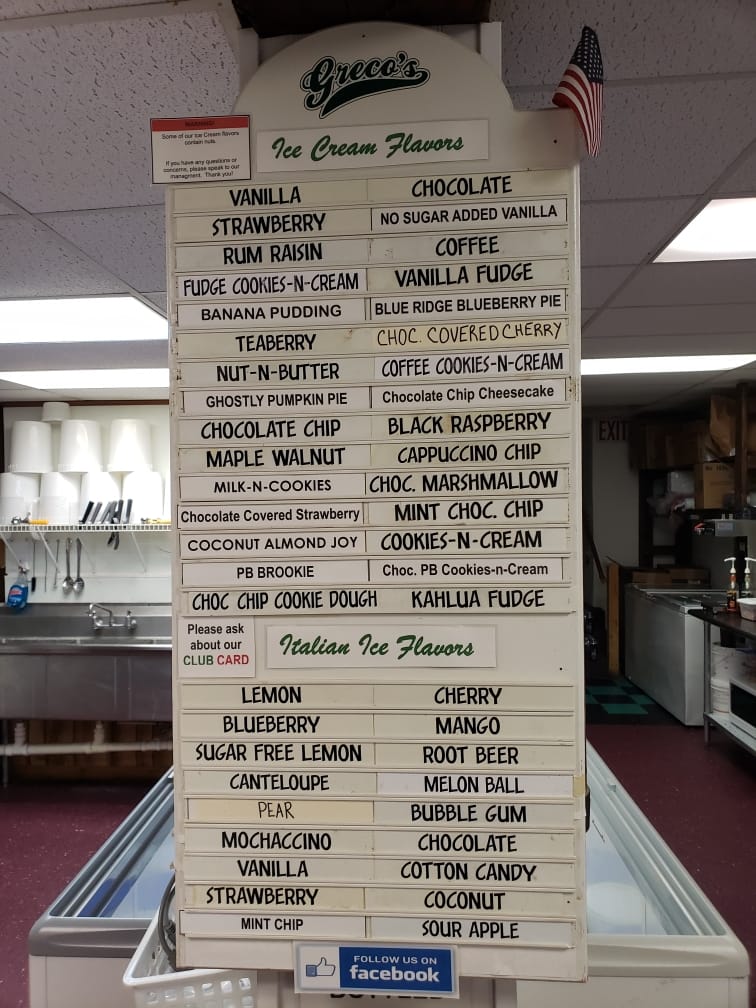 Greco's
Ice Cream Flavors
WARNING!
Some of our Ice Cream flavors
contain nuts.
If you have any questions or
concerns, please speak to our
managment. Thank you!
VANILLA CHOCOLATE
STRAWBERRY NO SUGAR ADDED VANILLA
RUM RAISIN COFFEE
FUDGE COOKIES-N-CREAM VANILLA FUDGE
BANANA PUDDING BLUE RIDGE BLUEBERRY PIE
TEABERRY CHOC. COVERED CHERRY
NUT-N-BUTTER COFFEE COOKIES-N-CREAM
GHOSTLY PUMPKIN PIE Chocolate Chip Cheesecake
CHOCOLATE CHIP BLACK RASPBERRY
MAPLE WALNUT CAPPUCCINO CHIP
MILK-N-COOKIES CHOC. MARSHMALLOW
Chocolate Covered Strawberry MINT CHOC. CHIP
COCONUT ALMOND JOY COOKIES-N-CREAM
PB BROOKIE Choc. PB Cookies-n-Cream
CHOC CHIP COOKIE DOUGH KAHLUA FUDGE
Please ask
about our
CLUB CARD
Italian Ice Flavors
LEMON CHERRY
BLUEBERRY MANGO
SUGAR FREE LEMON ROOT BEER
CANTELOUPE MELON BALL
PEAR BUBBLE GUM
MOCHACCINO CHOCOLATE
VANILLA COTTON CANDY
STRAWBERRY COCONUT
MINT CHIP SOUR APPLE
FOLLOW US ON
facebook
EXIT